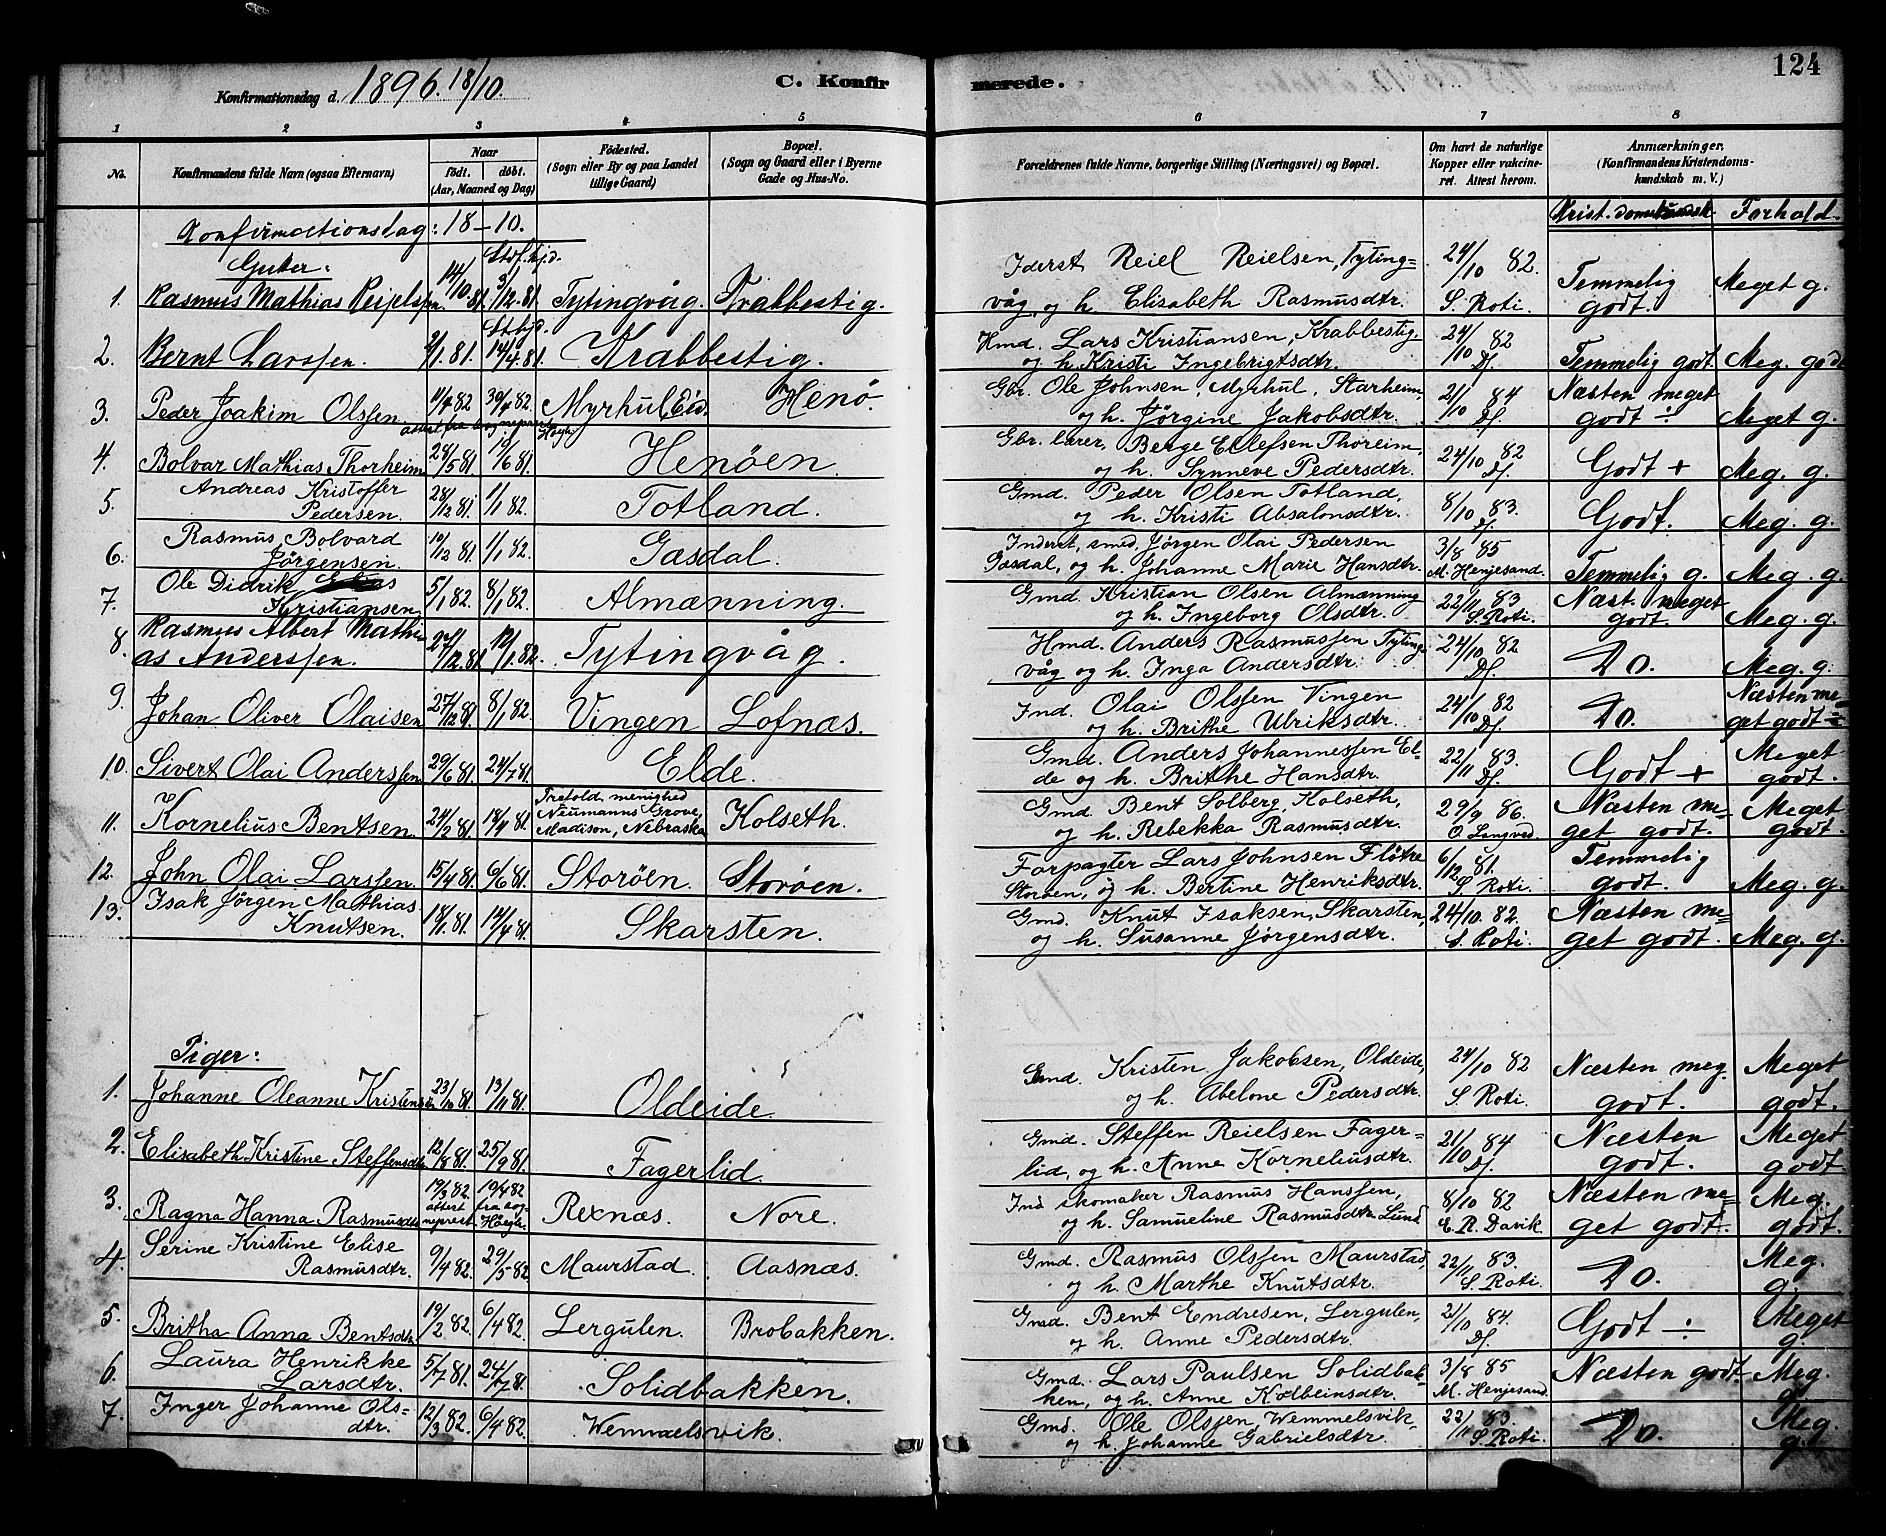 124
Konfirmationsdag d. 1896. 18/10.
C. Konfirmerede.
1 2 3 4 5 6 7 8
No.
Konfirmandens fulde Navn (ogsaa Efternavn)
Naar
født. døbt.
(Aar, Maaned og Dag)
Fødested.
(Sogn eller By og paa Landet
tillige Gaard)
Bopæl.
(Sogn og Gaard eller i Byerne
Gade og Hus-No.
Forældrenes fulde Navne, borgerlige Stilling (Næringsvei) og Bopæl.
Om havt de naturlige
Kopper eller vakcine-
ret. Attest herom.
Anmærkninger,
(Konfirmandens Kristendoms-
kundskab m. V.)
Krist.domskundsk. Forhold.
Konfirmationsdag: 18-10.
Gutter:
1. Rasmus Mathias Reielsen. 14/10 81. 3/12 81. Tytingvåg Krabbestig.
Iderst Reiel Reielsen, Tyting=
våg, og h. Elisabeth Rasmusdtr.
24/10 82.
S. Roti.
Temmelig
godt.
Meget g.
2. Bernt Larssen. 2/1.81. 14/4.81. Krabbestig.
Hmd. Lars Kristiansen, Krabbestig,
og h. Kristi Ingebrigtsdtr.
24/10 82
Df.
Temmelig godt. Meg. godt
3. Peder Joakim Olssen. 11/4 82 30/4 82. Myrhul, Eid. Henö.
attest fra sognepræst Høegh
Gbr. Ole Johnsen, Myrhul, Starheim,
og h. Jörgine Jakobsdtr.
21/10 84
Df.
Næsten meget
godt ÷
Meget g.
4. Bolvar Mathias Thorheim 28/5 81. 19/6 81. Henöen.
Gbr. lærer, Berge Ellefsen Thoreim,
og h. Synneve Pedersdtr.
24/10 82
Df.
Godt + Meg. g.
5. Andreas Kristoffer
Pedersen. 28/12 81. 1/1 82. Totland.
Gmd. Peder Olsen Totland,
og h. Kristi Absalonsdtr.
8/10 83.
Df.
Godt. Meg. g.
6. Rasmus Bolvard
Jörgensen. 10/12 81. 1/1 82. Gasdal.
Inderst, smed, Jörgen Olai Pedersen
Gasdal, og h. Johanne Marie Hansdtr.
3/8 85
M. Henjesand.
Temmelig g. Meg. g.
7. Ole Didrik
Kristiansen 5/1 82. 8/1 82. Almænning.
Gmd. Kristian Olsen Almænning
og h. Ingeborg Olsdtr.
22/11 83
S. Roti.
Næst. meget
godt. Meg. g.
8. Rasmus Albert Mathi-
as Anderssen. 27/12.81. 12/1.82. Tytingvåg.
Hmd. Anders Rasmussen Tyting-
våg og h. Inga Andersdtr.
24/10 82
Df.
Do. Meg. g.
9. Johan Oliver Olaisen 27/12 81. 8/1 82. Vingen Lofnæs.
Ind. Olai Olssen Vingen
og h. Brithe Ulriksdtr.
24/10 82
Df.
Do.
Næsten me-
get godt÷
10. Sivert Olai Anderssen 29/6 81. 24/7 81. Elde.
Gmd. Anders Johannessen El-
de og h. Brithe Hansdtr.
22/11 83.
Df.
Godt +
Meget
godt.
11. Kornelius Bentsen. 24/2 81. 18/4 81.
Trefold. menighed
Neumanns Grove,
Madison, Nebraska
Kolseth.
Gmd. Bent Solberg, Kolseth,
og h. Rebekka Rasmusdtr.
29/9 86.
O. Langved.
Næsten me=
get godt.
Meget
godt.
12. John Olai Larssen. 15/4 81. 6/6 81. Storöen. Storöen.
Forpagter Lars Johnsen Flötre
Storöen, og h. Bertine Henriksdtr.
6/12 81.
S. Roti.
Temmelig
godt. Meg. g.
13. Isak Jörgen Mathias
Knutsen. 18/1.81. 14/4 81. Skarsten.
Gmd. Knut Isaksen, Skarsten,
og h. Susanne Jörgensdtr.
24/10. 82.
S. Roti.
Næsten me=
get godt. Meg. g.
Piger:
1. Johanne Oleanne Kristensen 23/10 81. 13/11 81. Oldeide.
Gmd. Kristen Jakobsen, Oldeide,
og h. Abelone Pedersdtr.
24/10 82
S. Roti.
Næsten meg.
godt.
Meget
godt.
2. Elisabeth Kristine Steffensdtr. 12/8 81. 25/9 81. Fagerlid.
Gmd. Steffen Reielsen Fager=
lid, og h. Anne Korneliusdtr.
21/10 84
Df.
Næsten
godt.
Meget
godt
3. Ragna Hanna Rasmusdtr. 19/3 82. 10/4 82
attest fra sog-
nepræst Höegh.
Rexnæs. Nore.
Ind skomaker Rasmus Hanssen,
og h. Samueline Rasmusdtr. Lund
8/10 82
E. R. Davik
Næsten me=
get godt.
Meg.
godt.
4. Serine Kristine Elise
Rasmusdtr. 9/4 82. 29/5 82 Maurstad. Aasnæs.
Gmd. Rasmus Olssen Maurstad,
og h. Marthe Knutsdtr.
22/11 83.
S. Roti.
Do.
Meg.
g.
5. Britha Anna Bentsdtr. 19/2 82. 6/4 82. Lergulen. Brobakken.
Gmd. Bent Endresen, Lergulen,
og h. Anne Pedersdtr.
21/10 84.
Df.
Godt ÷
Meget
g.
6. Laura Henrikke
Larsdtr. 5/7 81. 24/7 81. Solidbakken.
Gmd. Lars Paulsen Solidbak-
ken, og h. Anne Kolbeinsdtr.
3/8 85
M. Henjesand.
Næsten godt. Meg.
7. Inger Johanne Ols=
dtr. 12/3 82. 6/4 82. Wemmelsvik.
Gmd. Ole Olssen, Wemmelsvik
og h. Johanne Gabrielsdtr.
22/11 83.
S. Roti.
Do.
Meg.
g.